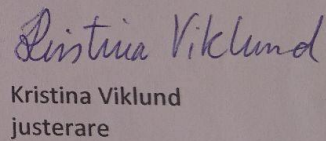 Kristina Viklund
Kristina Viklund
justerare